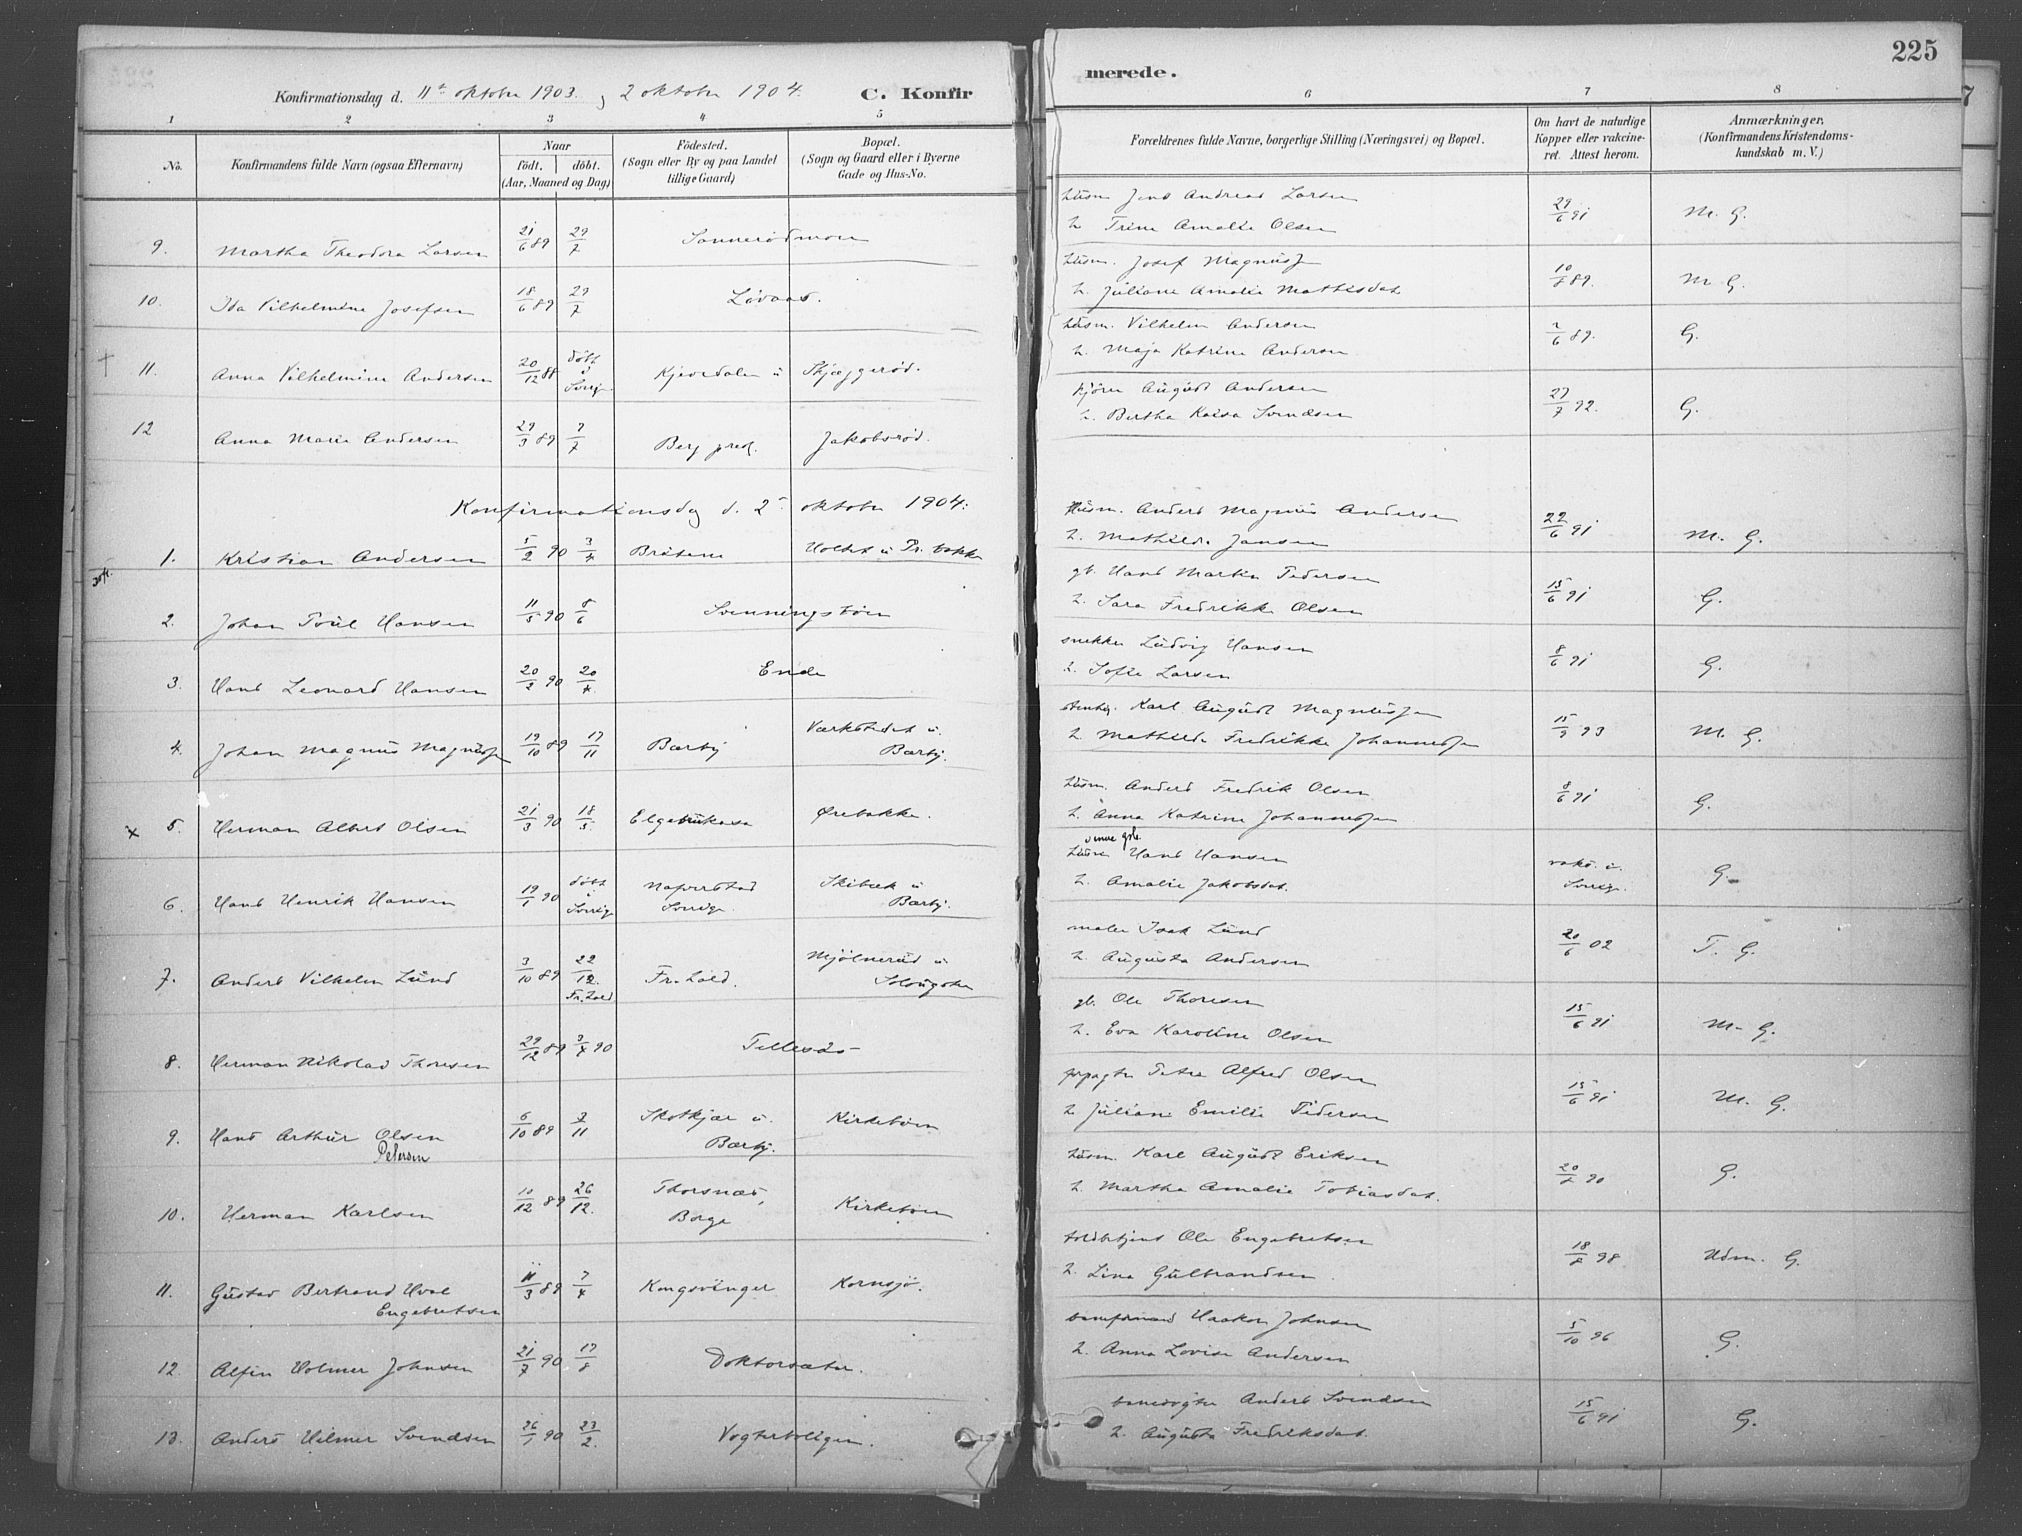 Konfirmationsdag d. 11te oktober 1903. 2 oktober 1904. C. Konfir
1 2 3 4 5
No. Konfirmandens fulde Navn (ogsaa Efternavn) Naar födt. döbt. (Aar, Maaned og Dag) Födested. (Sogn eller By og paa Landet tillige Gaard) Bopæl. (Sogn og Gaard eller i Byerne Gade og Hus-No.
9. Martha Theodora Larsen 21/6 89 29/7 Sannerødmoen
10. Ida Vilhelmine Josefsen 18/6 89 29/7 Løvaas.
11. Anna Vilhelmine Andersen 20/12 88 döbt i Sverige Kjevedalen u Skjæggerød.
12 Anna Marie Andersen 29/3 89 7/7 Berg præg. Jakobsrød.
Konfirmationsdag d. 2 oktober 1904:
1. Kristian Andersen 5/2 90 3/4 Bråtene Holtet u Pr. bakke
2. Johan Poul Hansen 11/5 90 8/6 Svenningsbøen
3. Hans Leonard Hansen 20/2 90 20/4 Ende
4. Johan Magnus Magnussen 19/10 89 17/11 Barby Værkstedet u. Barby.
5. Herman Albert Olsen 21/3 90 18/5. Ørebakke.
6. Hans Henrik Hansen 19/1 90 döbt i Sverige Naverstad Sverige. Skibæk u Barby.
7. Anders Vilhelm Lund 3/10 89 22/12 Fr.hald Fr.hald. Mjölnerud u.
8. Herman Nikolas Thoresen 29/12 89 3/4 90
9. Hans Arthur Olsen Petersen 6/10 89 7/11 Skotkjær u. Barby. Kirkebøen
10. Herman Karlsen 10/12 89 26/12. Thorsnæs, Borge Kirkebøen
11. Gustav Bertrand Hval Engebretsen 11/3 89 7/4 Kongsvinger Kornsjø.
12. Alfin Holmer Johnsen 21/7 90 17/8 Doktorsæter.
13. Anders Hilmer Svendsen 26/1 90 23/2. Vogterboligen.
225
merede.
6 7 8
Forældrenes fulde Navne, borgerlige Stilling (Næringsvei) og Bopæl. Om havt de naturlige Kopper eller vakcineret. Attest herom. Anmærkninger. (Konfirmandens Kristendomskundskab m. V.)
husm Jens Andreas Larsen 29/6 91 M. G.
h. Trine Amalie Olsen
husm. Josef Magnussen 10/8 89. M G.
h. Juliane Amalie Mathisdat
husm. Vilhelm Andersen 7/6 89. G.
h. Maja Katrine Andersen
kjører August Andersen 27/7 92. G.
h. Bertha Kaisa Svendsen
Husm. Anders Magnus Andersen 22/6 91 M. G.
h. Mathilde Jansen
gb. Hans Martin Pedersen 15/6 91 G.
h. Sara Fredrikke Olsen
snekker Ludvig Hansen 8/6 91 G.
h. Sofie Larsen
stenhg. Karl August Magnussen 15/9 93 M. G.
h. Mathilde Fredrikke Johannessen
husm. Anders Fredrik Olsen 8/6 91 G.
h. Anna Katrine Johannessen
husm Hans Hansen vakc. i Sverige. G.
h. Amalie Jakobsdat.
maler Isak Lund 20/6 02 T. G.
h. Augusta Andersen
gb. Ole Thoresen 15/6 91 M. G.
h. Eva Karoline Olsen
Peter Alfred Olsen 15/6 91 M. G.
h Juliane Emilie Pedersen
husm. Karl August Eriksen 20/8 90 G.
h. Martha Amalie Tobiasdat.
toldbetjent Ole Engebretsen 18/8 98 Udm. G.
h. Lina Gulbrandsen
baneformand Haakon Johnsen 5/10 96 G.
h. Anna Lovise Andersen
banevogter Anders Svendsen 15/6 91 G.
h. Augusta Fredriksdat.